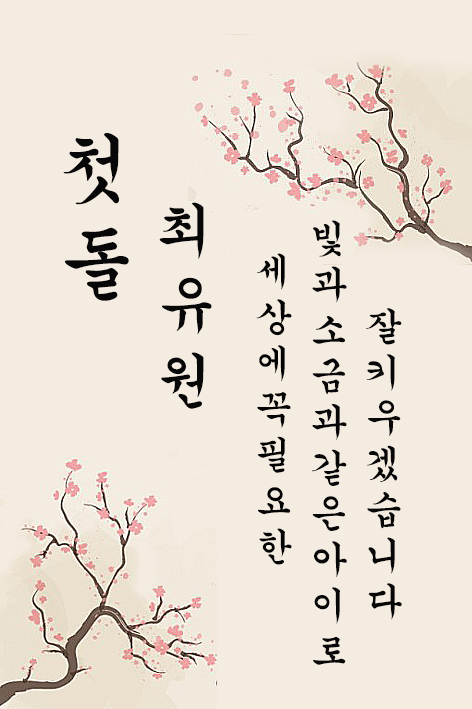 첫돌
최유원
세상에꼭필요한
빛과소금과같은아이로
잘키우겠습니다